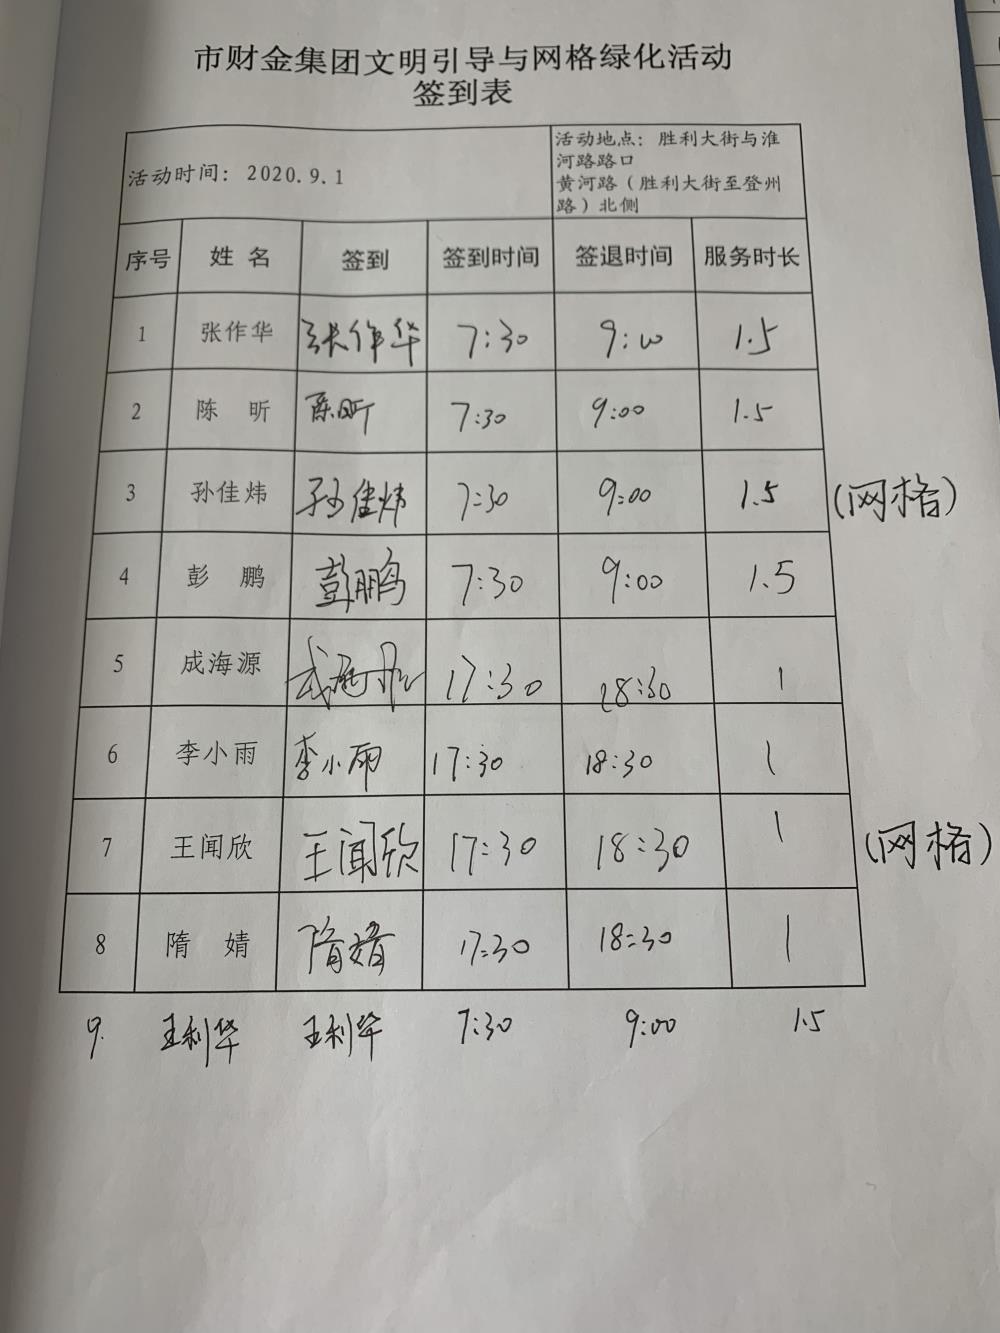 市财金集团文明引导与网格绿化活动
签到表
活动时间：2020.9.1
活动地点：胜利大街与淮
河路路口
黄河路（胜利大街至登州
路）北侧
序号 姓 名 签到 签到时间 签退时间 服务时长
1 张作华 张作华 7:30 9:00 1.5
2 陈 昕 陈昕 7:30 9:00 1.5
3 孙佳炜 孙佳炜 7:30 9:00 1.5 (网格)
4 彭 鹏 彭鹏 7:30 9:00 1.5
5 成海源 成海源 17:30 18:30 1
6 李小雨 李小雨 17:30 18:30 1
7 王闻欣 王闻欣 17:30 18:30 1 (网格)
8 隋 婧 隋婧 17:30 18:30 1
9. 王利华 王利华 7:30 9:00 1.5